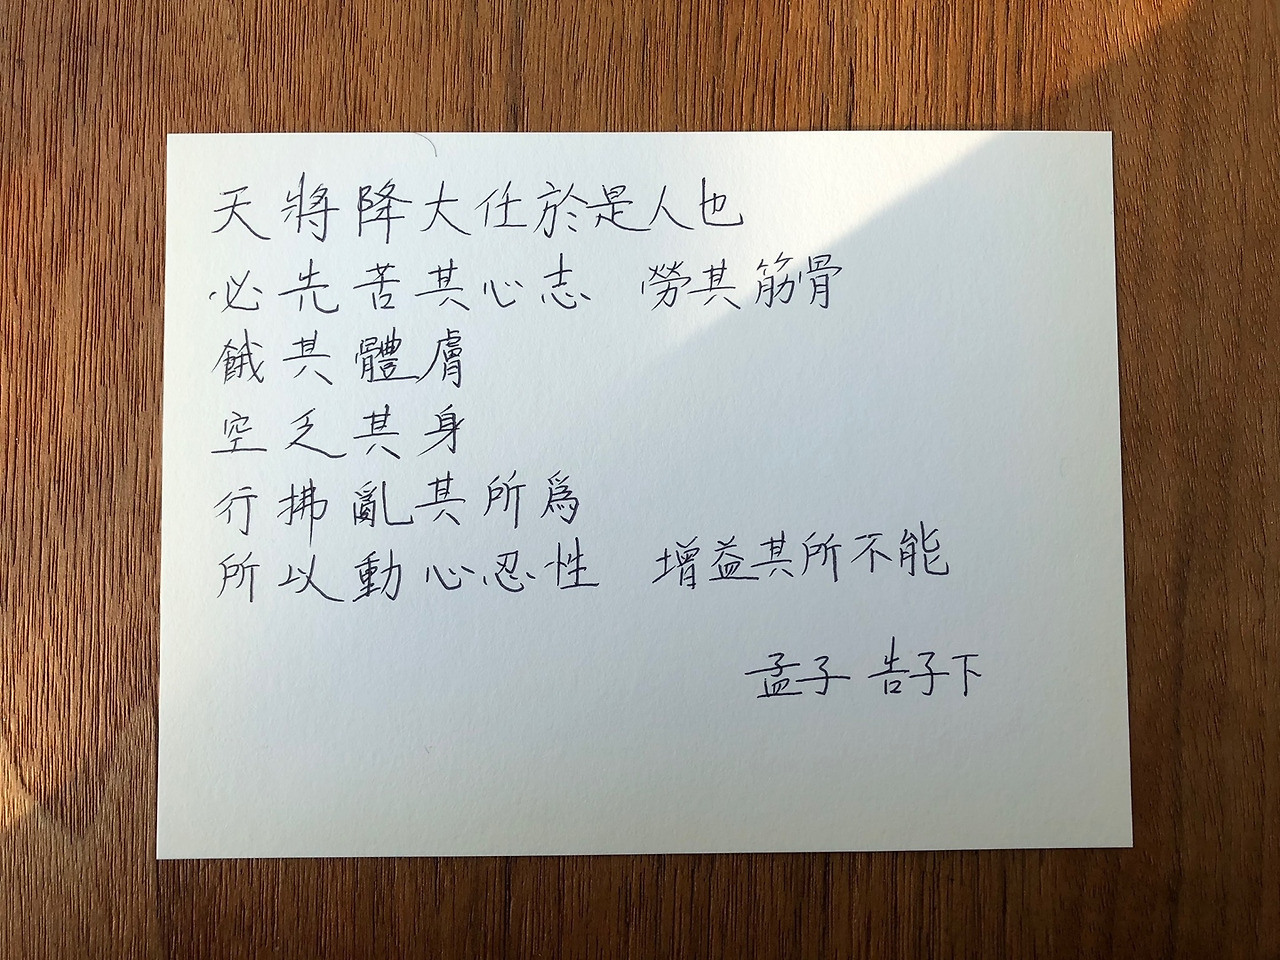 天將降大任於是人也
必先苦其心志 勞其筋骨
餓其體膚
空乏其身
行拂亂其所爲
所以動心忍性 增益其所不能
孟子 告子下